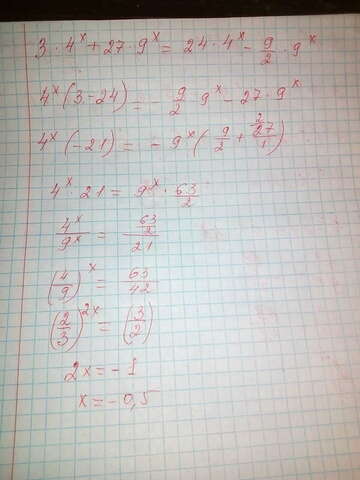 3 · 4^x + 27 · 9^x = 24 · 4^x - 9/2 · 9^x
4^x (3 - 24) = - 9/2 · 9^x - 27 · 9^x
4^x (-21) = - 9^x (9/2 + 2/27/1)
4^x 21 = 9^x · 63/2
4^x/9^x = 63/2/21
(4/9)^x = 63/42
(2/3)^2x = (3/2)
2x = - 1
x = - 0,5